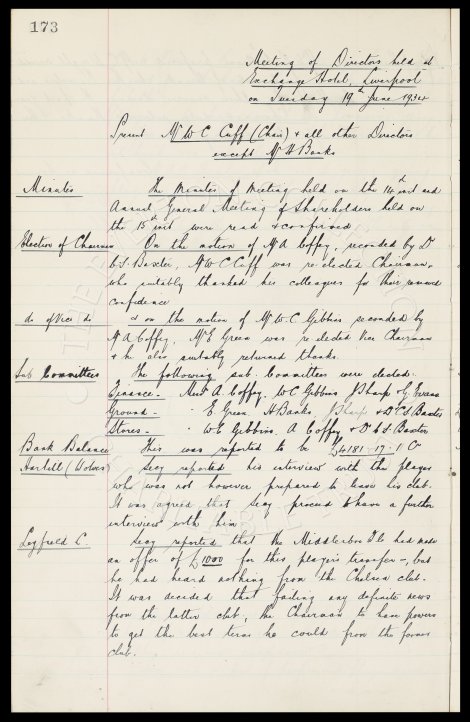 173
Meeting of Directors held at
Exchange Hotel, Liverpool
on Tuesday 19th June 1934
Present Mr W C Cuff (Chair) & all other Directors
except Mr H Banks
Minutes The Minutes of Meeting held on the 14th inst and
Annual General Meeting of Shareholders held on
the 15th inst were read & confirmed
Election of Chairman On the motion of Mr A Coffey, seconded by Dr
C.S. Baxter, Mr W C Cuff was re-elected Chairman,
who suitably thanked his colleagues for their renewed
confidence
do of Vice do & on the motion of Mr W. C. Gibbins seconded by
Mr A Coffey, Mr E Green was re-elected Vice Chairman
& he also suitably returned thanks.
Sub Committees The following sub. Committees were elected.
Finance - Messrs A. Coffey, W C Gibbins J Sharp & Evans
Ground - " E Green H Banks, J Sharp & Dr C S Baxter
Stores - " W C Gibbins A Coffey & Dr C S Baxter
Bank Balance This was reported to be £4181-17-1 Cr
Hartill (Wolves) Secy reported his interview with the player
who was not however prepared to leave his club.
It was agreed that Secy proceed to have a further
interview with him
Secy reported that the Middlesbro F C had made
an offer of £1000 for this player's transfer -, but
he had heard nothing from the Chelsea club.
It was decided that failing any definite news
from the latter club, the Chairman to have powers
to get the best terms he could from the former
club.